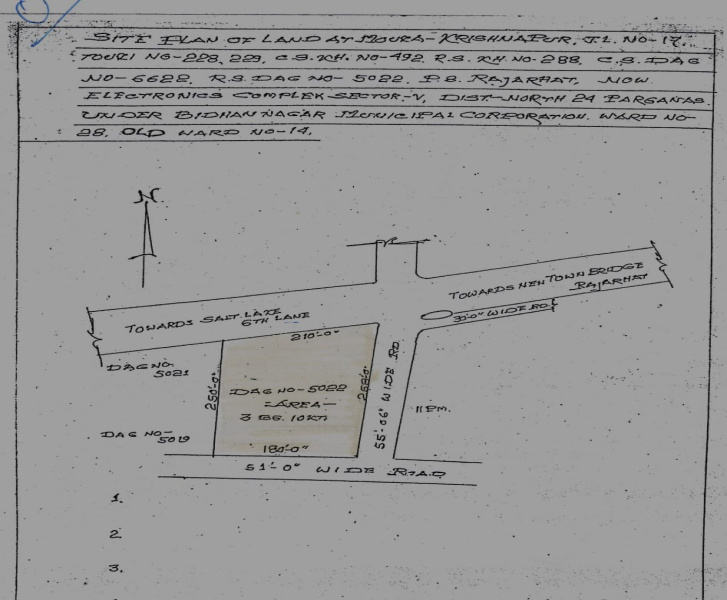 SITE PLAN OF LAND AT MOUZA-KRISHNAPUR, J.L. NO-17,
TOUZI NO-228, 229, C.S.KH. NO-492, R.S. KH NO-288, C.S. DAG
NO-6622, R.S. DAG NO-5022, P.S. RAJARHAT, NOW.
ELECTRONICS COMPLEX SECTOR-V, DIST-NORTH 24 PARGANAS.
UNDER BIDHAN NAGAR MUNICIPAL CORPORATION. WARD NO-
28, OLD WARD NO-14.
N
TOWARDS NEW TOWN BRIDGE
RAJARHAT
TOWARDS SALT LAKE
6TH LANE
WIDE RD.
210'-0"
DAG NO.
5021
250'-0"
DAG NO-5022
-AREA-
3 BG. 10KT
55'-06" WIDE RD.
11 PM.
DAG NO-
5019
180'-0"
51'-0" WIDE ROAD
1.
2.
3.